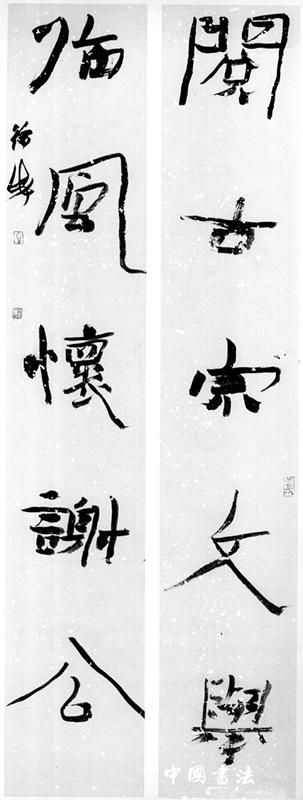 閲古宗文學
臨風懷謝公
中國書法